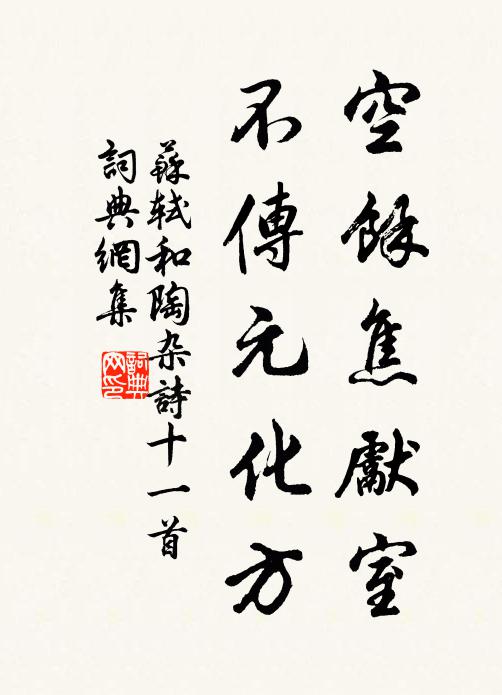 空餘焦獻室
不傳元化方
蘇軾和陶杂詩十一首
詞典網集
詞典网印